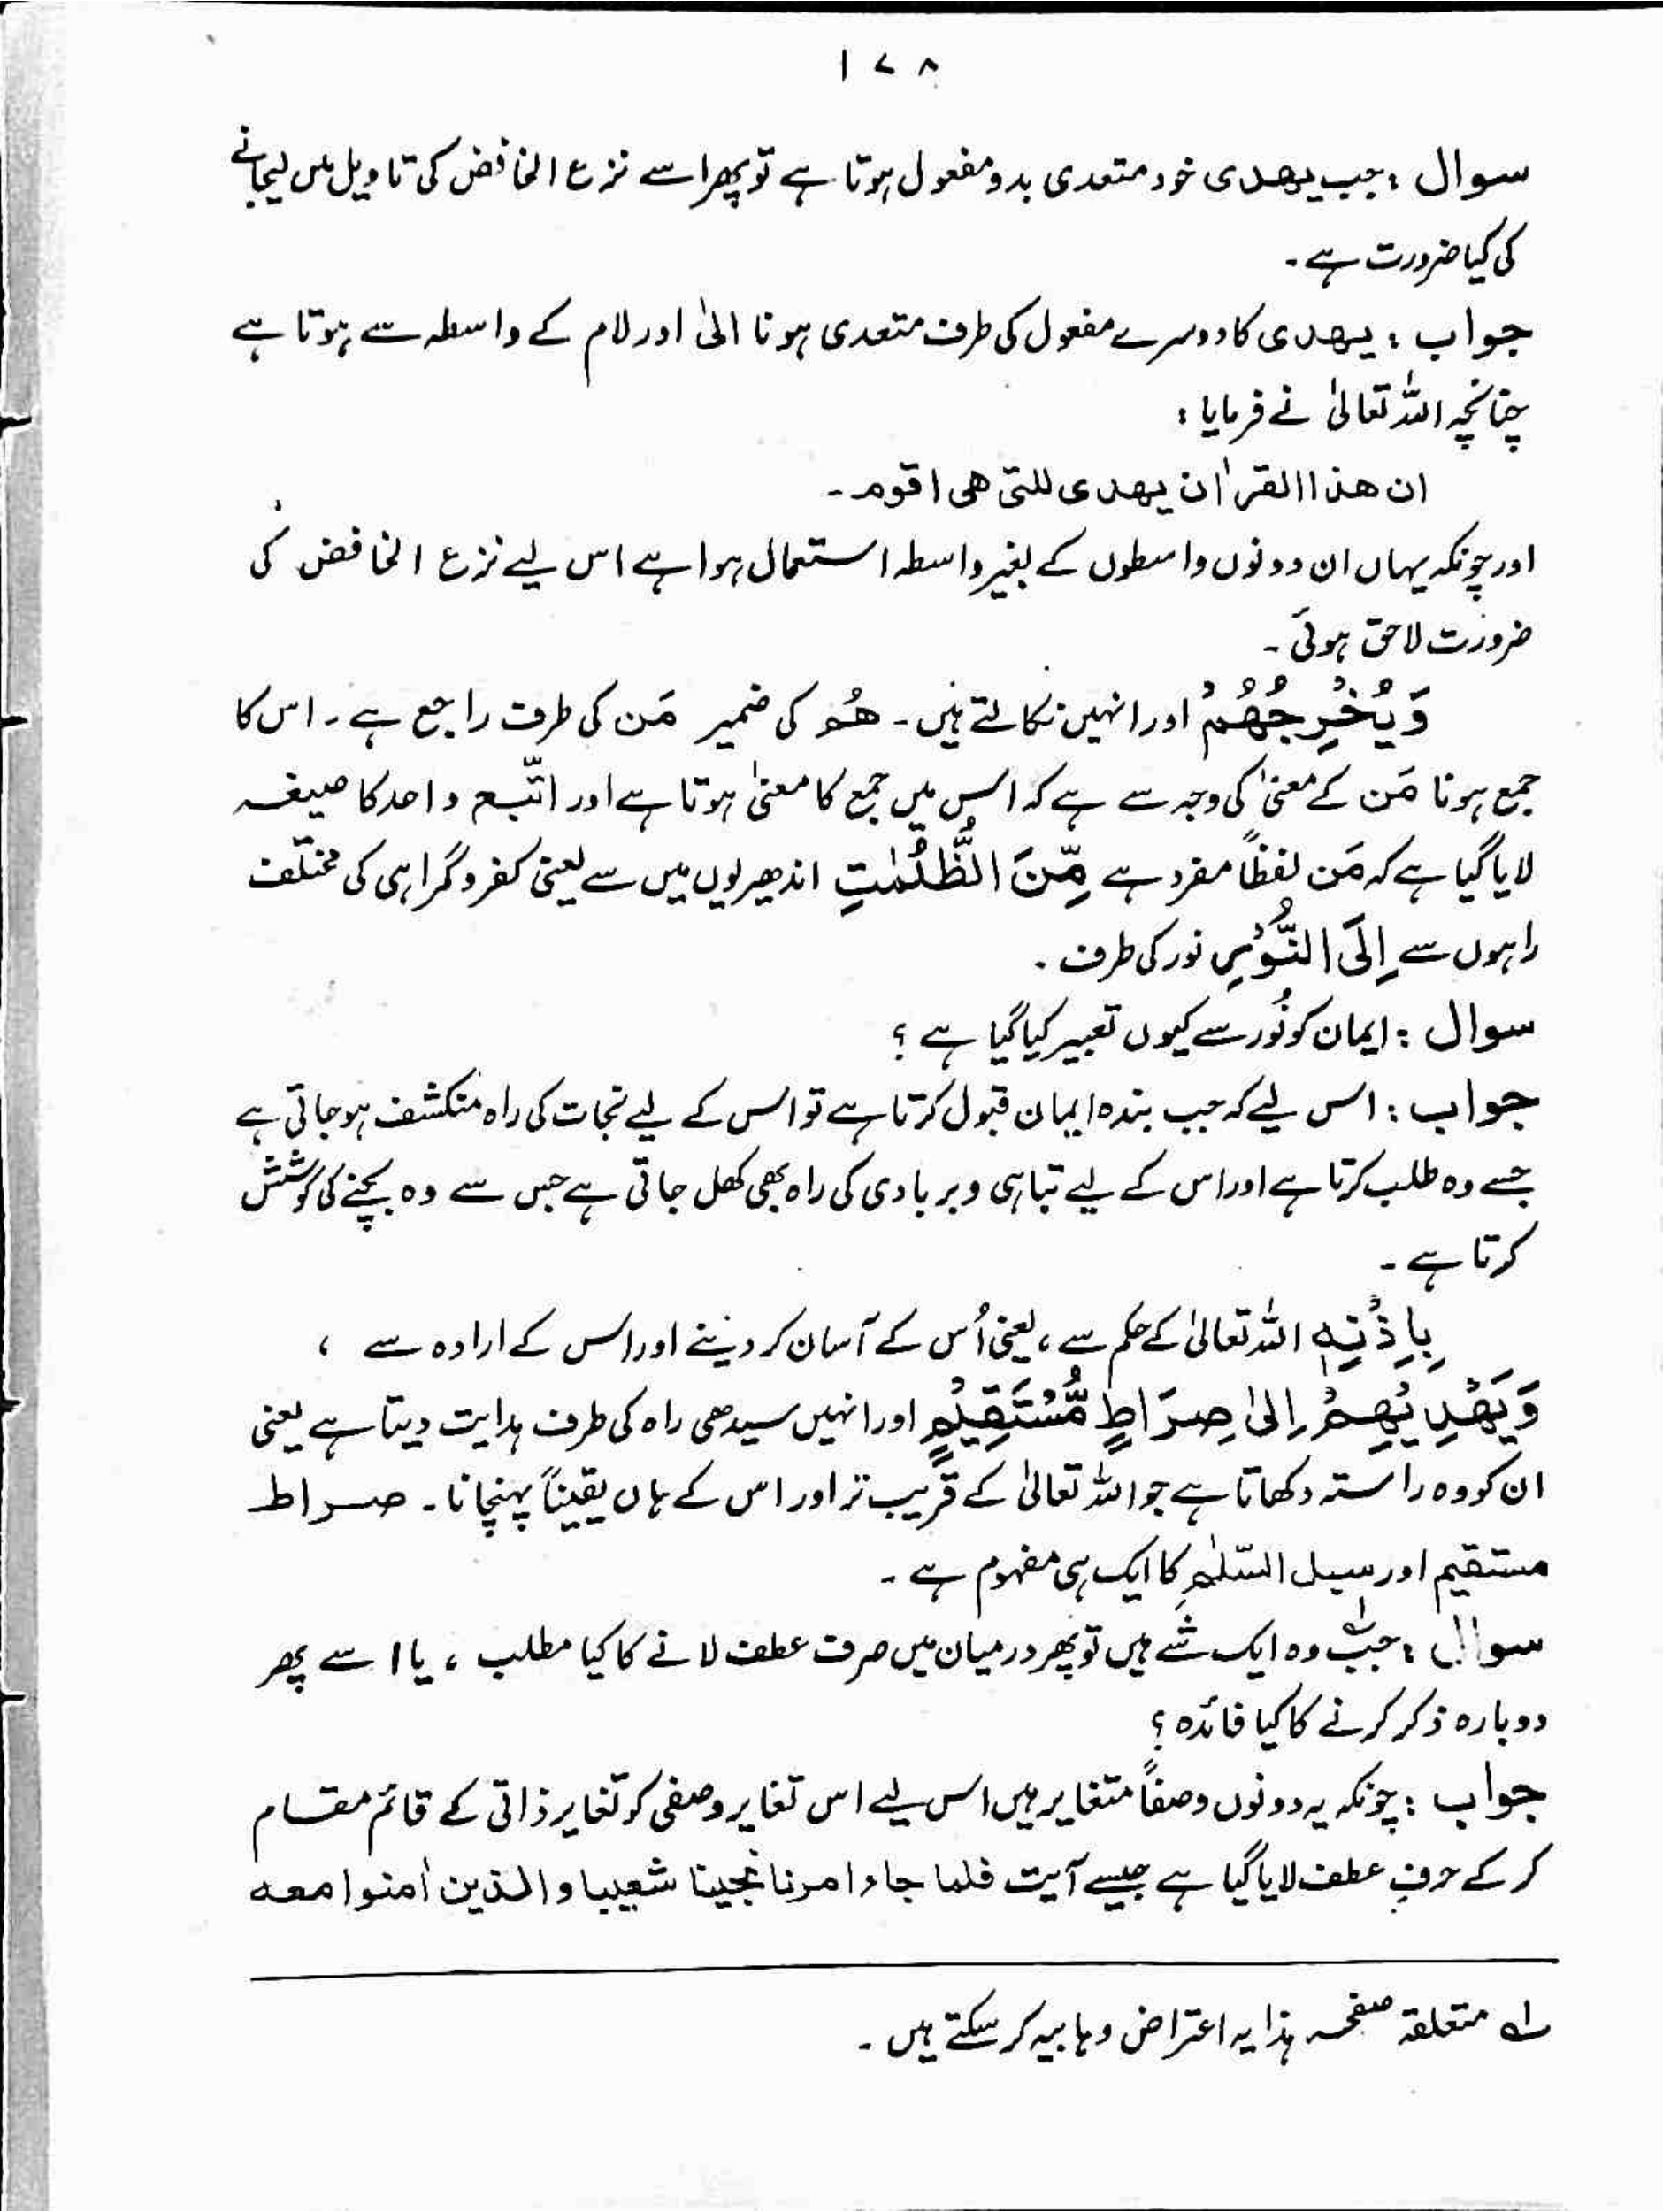 ۱۷۸
سوال : جب یھدی خود متعدی بدو مفعول ہوتا ہے تو پھر اسے نزع الخافض کی تاویل میں لیجانے
کی کیا ضرورت ہے ۔
جواب : یھدی کا دوسرے مفعول کی طرف متعدی ہونا الیٰ اور لام کے واسطہ سے ہوتا ہے
چنانچہ اللہ تعالیٰ نے فرمایا :
ان ھذا القراٰن یھدی للتی ھی اقوم ۔
اور چونکہ یہاں ان دونوں واسطوں کے بغیر واسطہ استعمال ہوا ہے اس لیے نزع الخافض کی
ضرورت لاحق ہوئی ۔
وَیُخْرِجُھُمْ اور انہیں نکالتے ہیں ۔ ھُم کی ضمیر مَن کی طرف راجع ہے ۔ اس کا
جمع ہونا مَن کے معنیٰ کی وجہ سے ہے کہ اس میں جمع کا معنیٰ ہوتا ہے اور اتّبع واحد کا صیغہ
لایا گیا ہے کہ مَن لفظاً مفرد ہے مِّنَ الظُّلُمٰتِ اندھیریوں میں سے یعنی کفر و گمراہی کی مختلف
راہوں سے اِلَی النُّوْرِ نور کی طرف ۔
سوال : ایمان کو نُور سے کیوں تعبیر کیا گیا ہے ؟
جواب : اس لیے کہ جب بندہ ایمان قبول کرتا ہے تو اس کے لیے نجات کی راہ منکشف ہو جاتی ہے
جسے وہ طلب کرتا ہے اور اس کے لیے تباہی و بربادی کی راہ بھی کھل جاتی ہے جس سے وہ بچنے کی کوشش
کرتا ہے ۔
بِاِذْنِہٖ اللہ تعالیٰ کے حکم سے ، یعنی اُس کے آسان کر دینے اور اس کے ارادہ سے ،
وَیَھْدِیْھِمْ اِلیٰ صِرَاطٍ مُّسْتَقِیْمٍ اور انہیں سیدھی راہ کی طرف ہدایت دیتا ہے یعنی
ان کو وہ راستہ دکھاتا ہے جو اللہ تعالیٰ کے قریب تر اور اس کے ہاں یقیناً پہنچانا ۔ صراط
مستقیم اور سبل السّلٰمِ کا ایک ہی مفہوم ہے ۔
سوال : جب ؂۱ وہ ایک شے ہیں تو پھر درمیان میں صرف عطف لانے کا کیا مطلب ، یا اسے پھر
دوبارہ ذکر کرنے کا کیا فائدہ ؟
جواب : چونکہ یہ دونوں وصفاً متغایر ہیں اس لیے اس تغایر وصفی کو تغایر ذاتی کے قائم مقام
کر کے حرفِ عطف لایا گیا ہے جیسے آیت فلما جاء امرنا نجینا شعیبا والذین اٰمنوا معه
؂۱ متعلقہ صفحہ ہذا یہ اعتراض وہابیہ کر سکتے ہیں ۔